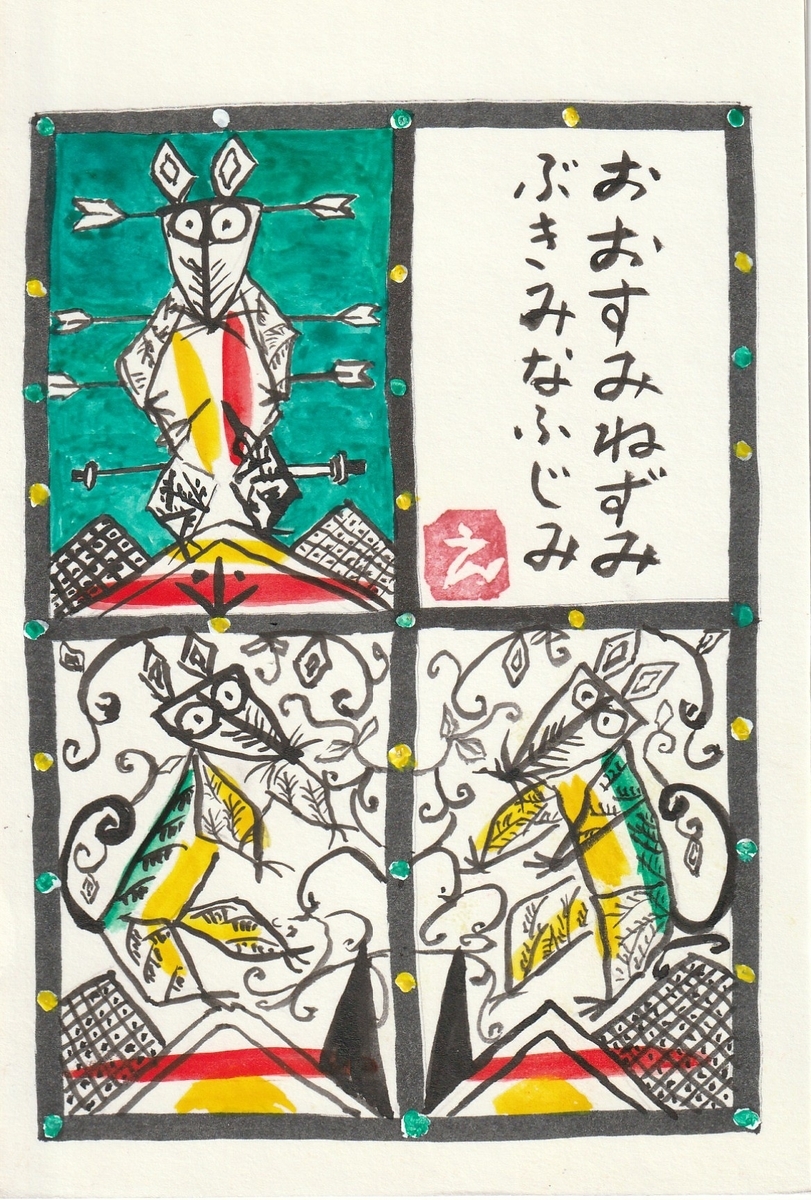 おおすみねずみ
ぶきみなふじみ
え